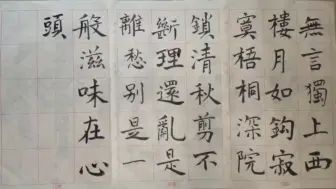 無言獨上西
樓月如鈎寂
寞梧桐深院
鎖清秋剪不
斷理還亂是
離愁别是一
般滋味在心
頭